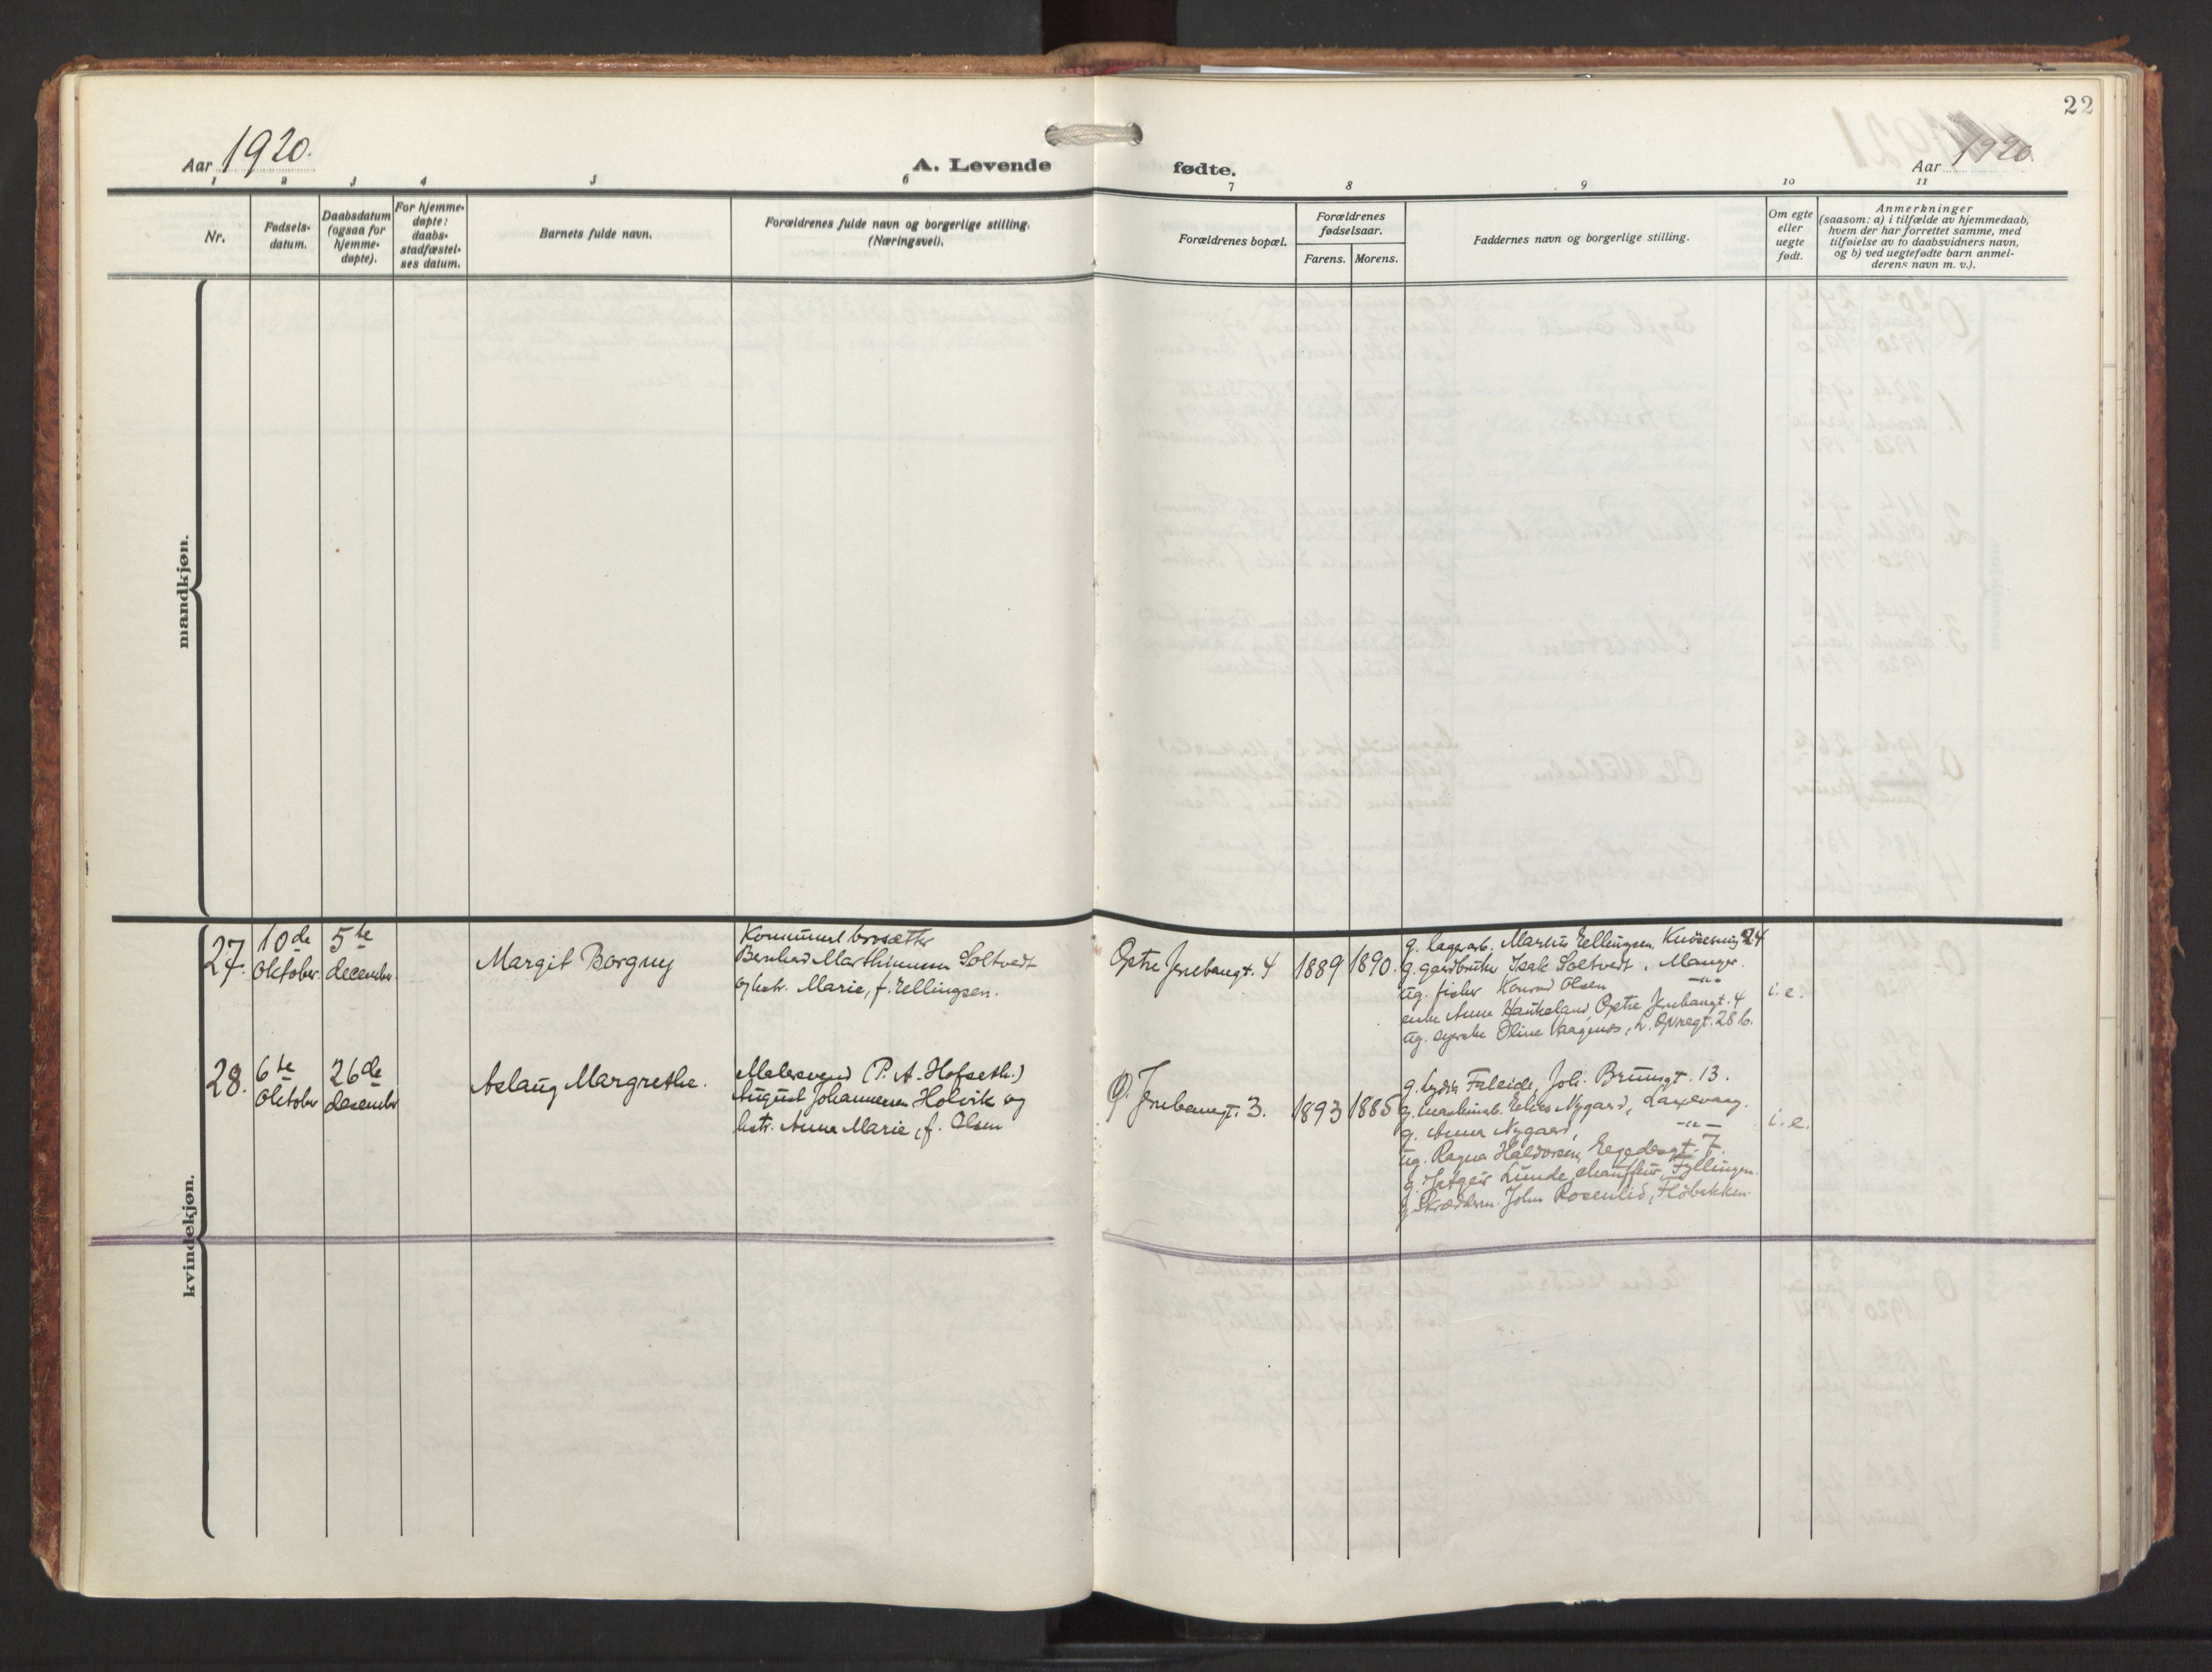 22
Aar 1920.
A. Levende
fødte.
Aar 1920
1 2 3 4 5 6 7 8 9 10 11
Nr.
Fødsels-
datum.
Daabsdatum
(ogsaa for
hjemme-
døpte).
For hjemme-
døpte:
daabs-
stadfæstel-
ses datum.
Barnets fulde navn.
Forældrenes fulde navn og borgerlige stilling.
(Næringsvei).
Forældrenes bopæl.
Forældrenes
fødselsaar.
Farens. Morens.
Faddernes navn og borgerlige stilling.
Om egte
eller
uegte
født.
Anmerkninger
(saasom: a) i tilfælde av hjemmedaab,
hvem der har forrettet samme, med
tilføielse av to daabsvidners navn,
og b) ved uegtefødte barn anmel-
derens navn m. v.).
mandkjøn.
kvindekjøn.
27.
10de
oktober.
5te
december.
Margit Borgny
Bernhard Marthinussen Soltvedt
og hstr. Marie, f. Ellingsen.
Øvtre Jernbanegt. 4
1889
1890.
g. lagerarb. Marius Ellingsen,
g. gaardbruker Isak Soltvedt, Manger.
ug. fisker Konrad Olsen —"—
enke Anna Haukeland, Jernbanegt. 4
ug. Oline 28 b.
i. e.
28.
6te
Oktober
26de
desember
Aslaug Margrethe.
Malersvend (P. A. Hofseth.)
August Johannessen Holvik og
hstr. Anna Marie, f. Olsen
Ø. Jernbanegt. 3.
1893
1885
g. Lydia Faleide, Joh. Brunsgt. 13.
g. maskinarb. Nygaard, Laxevaag.
g. Anna Nygaard, —"—
ug. Ragna Haldorsen, Egedesgt. 7.
g. Lunde, chauffør, Fyllingen.
g. John Rosenlid, Fløbakken.
i. e.